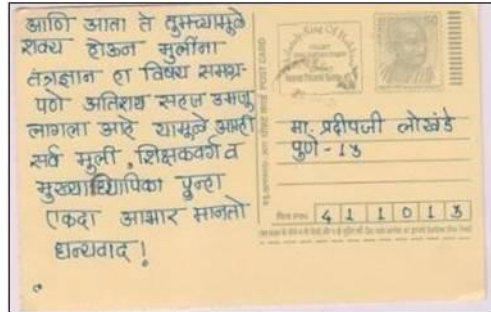 आणि आता ते तुमच्यामुळे
शक्य होऊन मुलींना
तंत्रज्ञान हा विषय समग्र-
पणे अतिशय सहज उमजू
लागला आहे यामुळे आम्ही
सर्व मुली, शिक्षकवर्ग व
मुख्याध्यिपिका पुन्हा
एकदा आभार मानतो
धन्यवाद !
POST CARD
50
मा. प्रदीपजी लोखंडे
पुणे - १३
पिन PIN
4 1 1 0 1 3